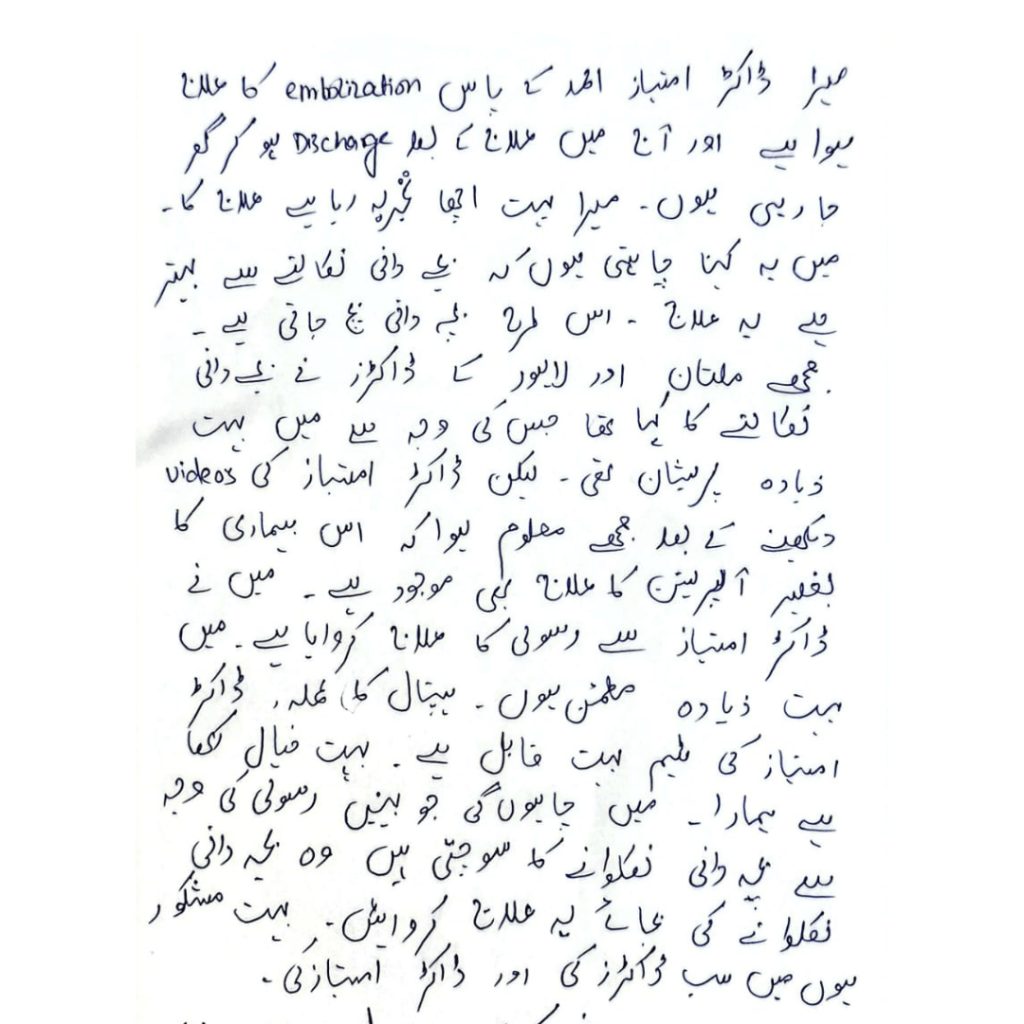 میرا ڈاکٹر امتیاز احمد کے پاس embolization کا علاج
ہوا ہے اور آج میں علاج کے بعد Discharge ہو کر گھر
جا رہی ہوں۔ میرا بہت اچھا تجربہ رہا ہے علاج کا۔
میں یہ کہنا چاہتی ہوں کہ بچے دانی نکالنے سے بہتر
ہے یہ علاج ۔ اس طرح بچہ دانی بچ جاتی ہے ۔
مجھے ملتان اور لاہور کے ڈاکٹرز نے بچے دانی
نکالنے کا کہا تھا جس کی وجہ سے میں بہت
زیادہ پریشان تھی ۔ لیکن ڈاکٹر امتیاز کی videos
دیکھنے کے بعد مجھے معلوم ہوا کہ اس بیماری کا
بغیر آپریشن کا علاج بھی موجود ہے ۔ میں نے
ڈاکٹر امتیاز سے رسولی کا علاج کروایا ہے ۔ میں
بہت زیادہ مطمئن ہوں ۔ ہسپتال کا عملہ، ڈاکٹر
امتیاز کی ٹیم بہت قابل ہے ۔ بہت خیال رکھا
ہے ہمارا ۔ میں چاہوں گی جو بہنیں رسولی کی وجہ
سے بچہ دانی نکلوانے کا سوچتی ہیں وہ بچہ دانی
نکلوانے کی بجائے یہ علاج کروائیں ۔ بہت مشکور
ہوں میں سب ڈاکٹرز کی اور ڈاکٹر امتیاز کی ۔